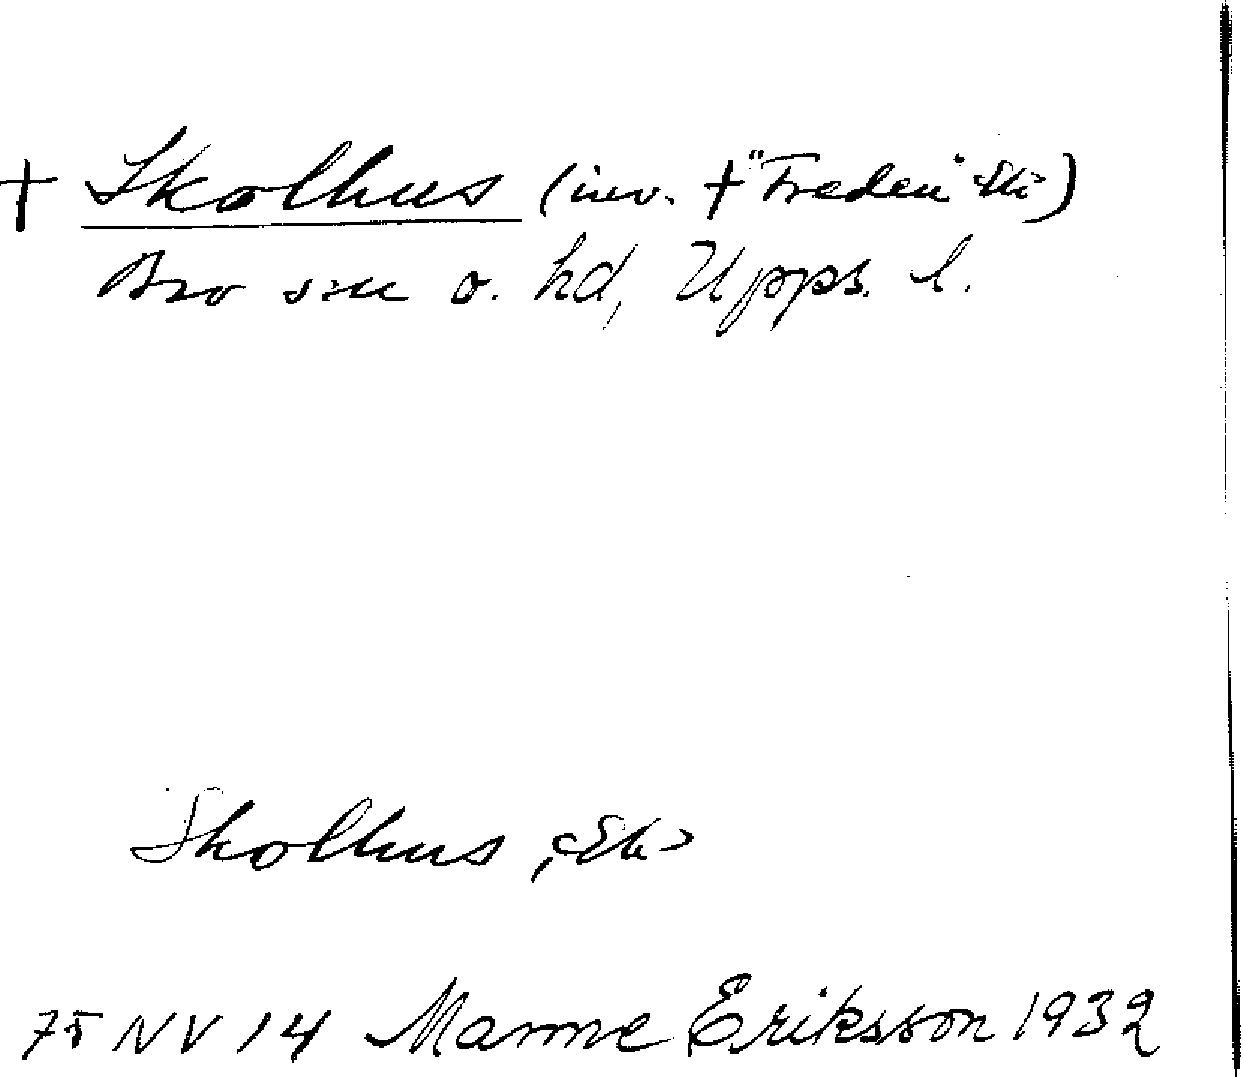 + Skolhus (inv. + "Freden" <Ek>)
Bro sn o. hd, Upps. l.
Skolhus, <Ek>
75 NV 14 Manne Eriksson 1932